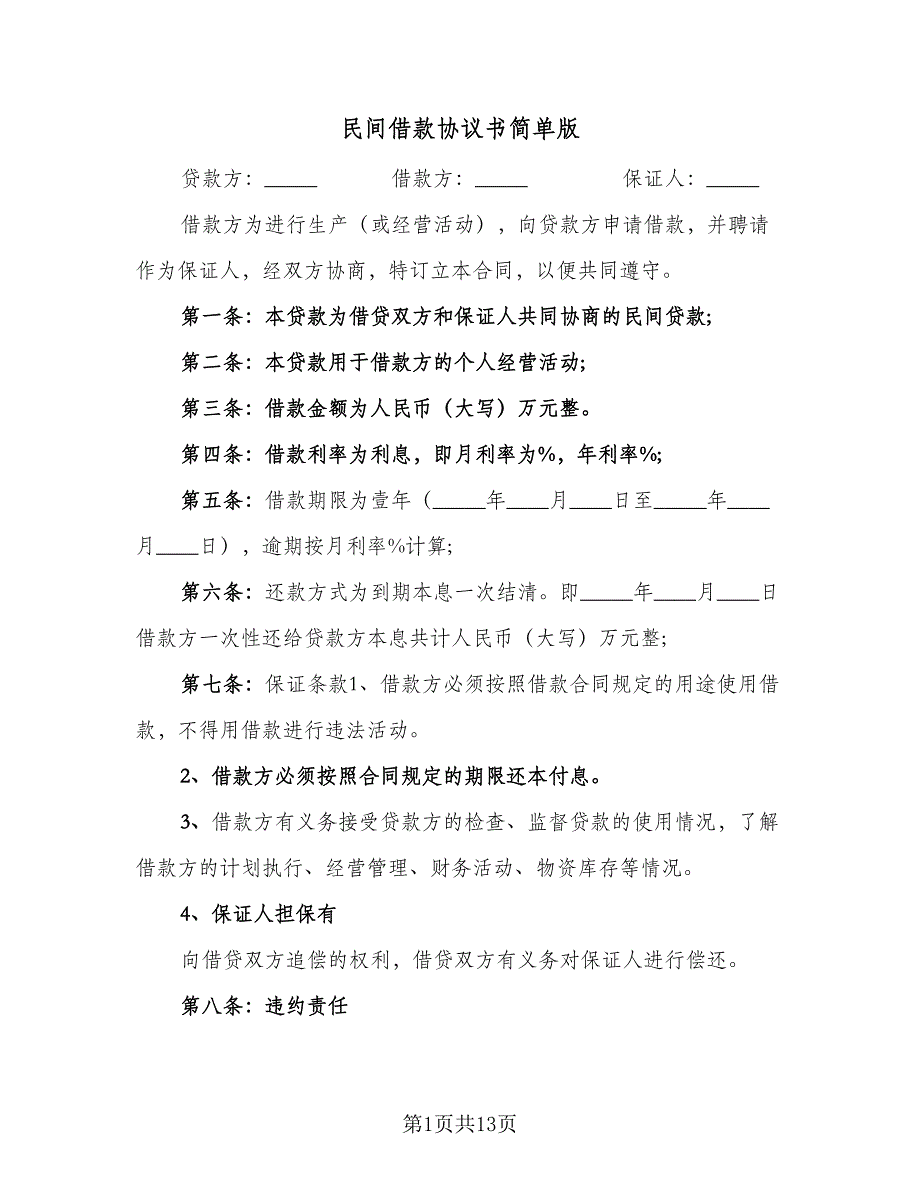 民间借款协议书简单版
贷款方：_____ 借款方：_____ 保证人：_____
借款方为进行生产（或经营活动），向贷款方申请借款，并聘请
作为保证人，经双方协商，特订立本合同，以便共同遵守。
第一条：本贷款为借贷双方和保证人共同协商的民间贷款;
第二条：本贷款用于借款方的个人经营活动;
第三条：借款金额为人民币（大写）万元整。
第四条：借款利率为利息，即月利率为%，年利率%;
第五条：借款期限为壹年（_____年____月____日至_____年____
月____日），逾期按月利率%计算;
第六条：还款方式为到期本息一次结清。即_____年____月____日
借款方一次性还给贷款方本息共计人民币（大写）万元整;
第七条：保证条款1、借款方必须按照借款合同规定的用途使用借
款，不得用借款进行违法活动。
2、借款方必须按照合同规定的期限还本付息。
3、借款方有义务接受贷款方的检查、监督贷款的使用情况，了解
借款方的计划执行、经营管理、财务活动、物资库存等情况。
4、保证人担保有
向借贷双方追偿的权利，借贷双方有义务对保证人进行偿还。
第八条：违约责任
第1页共13页